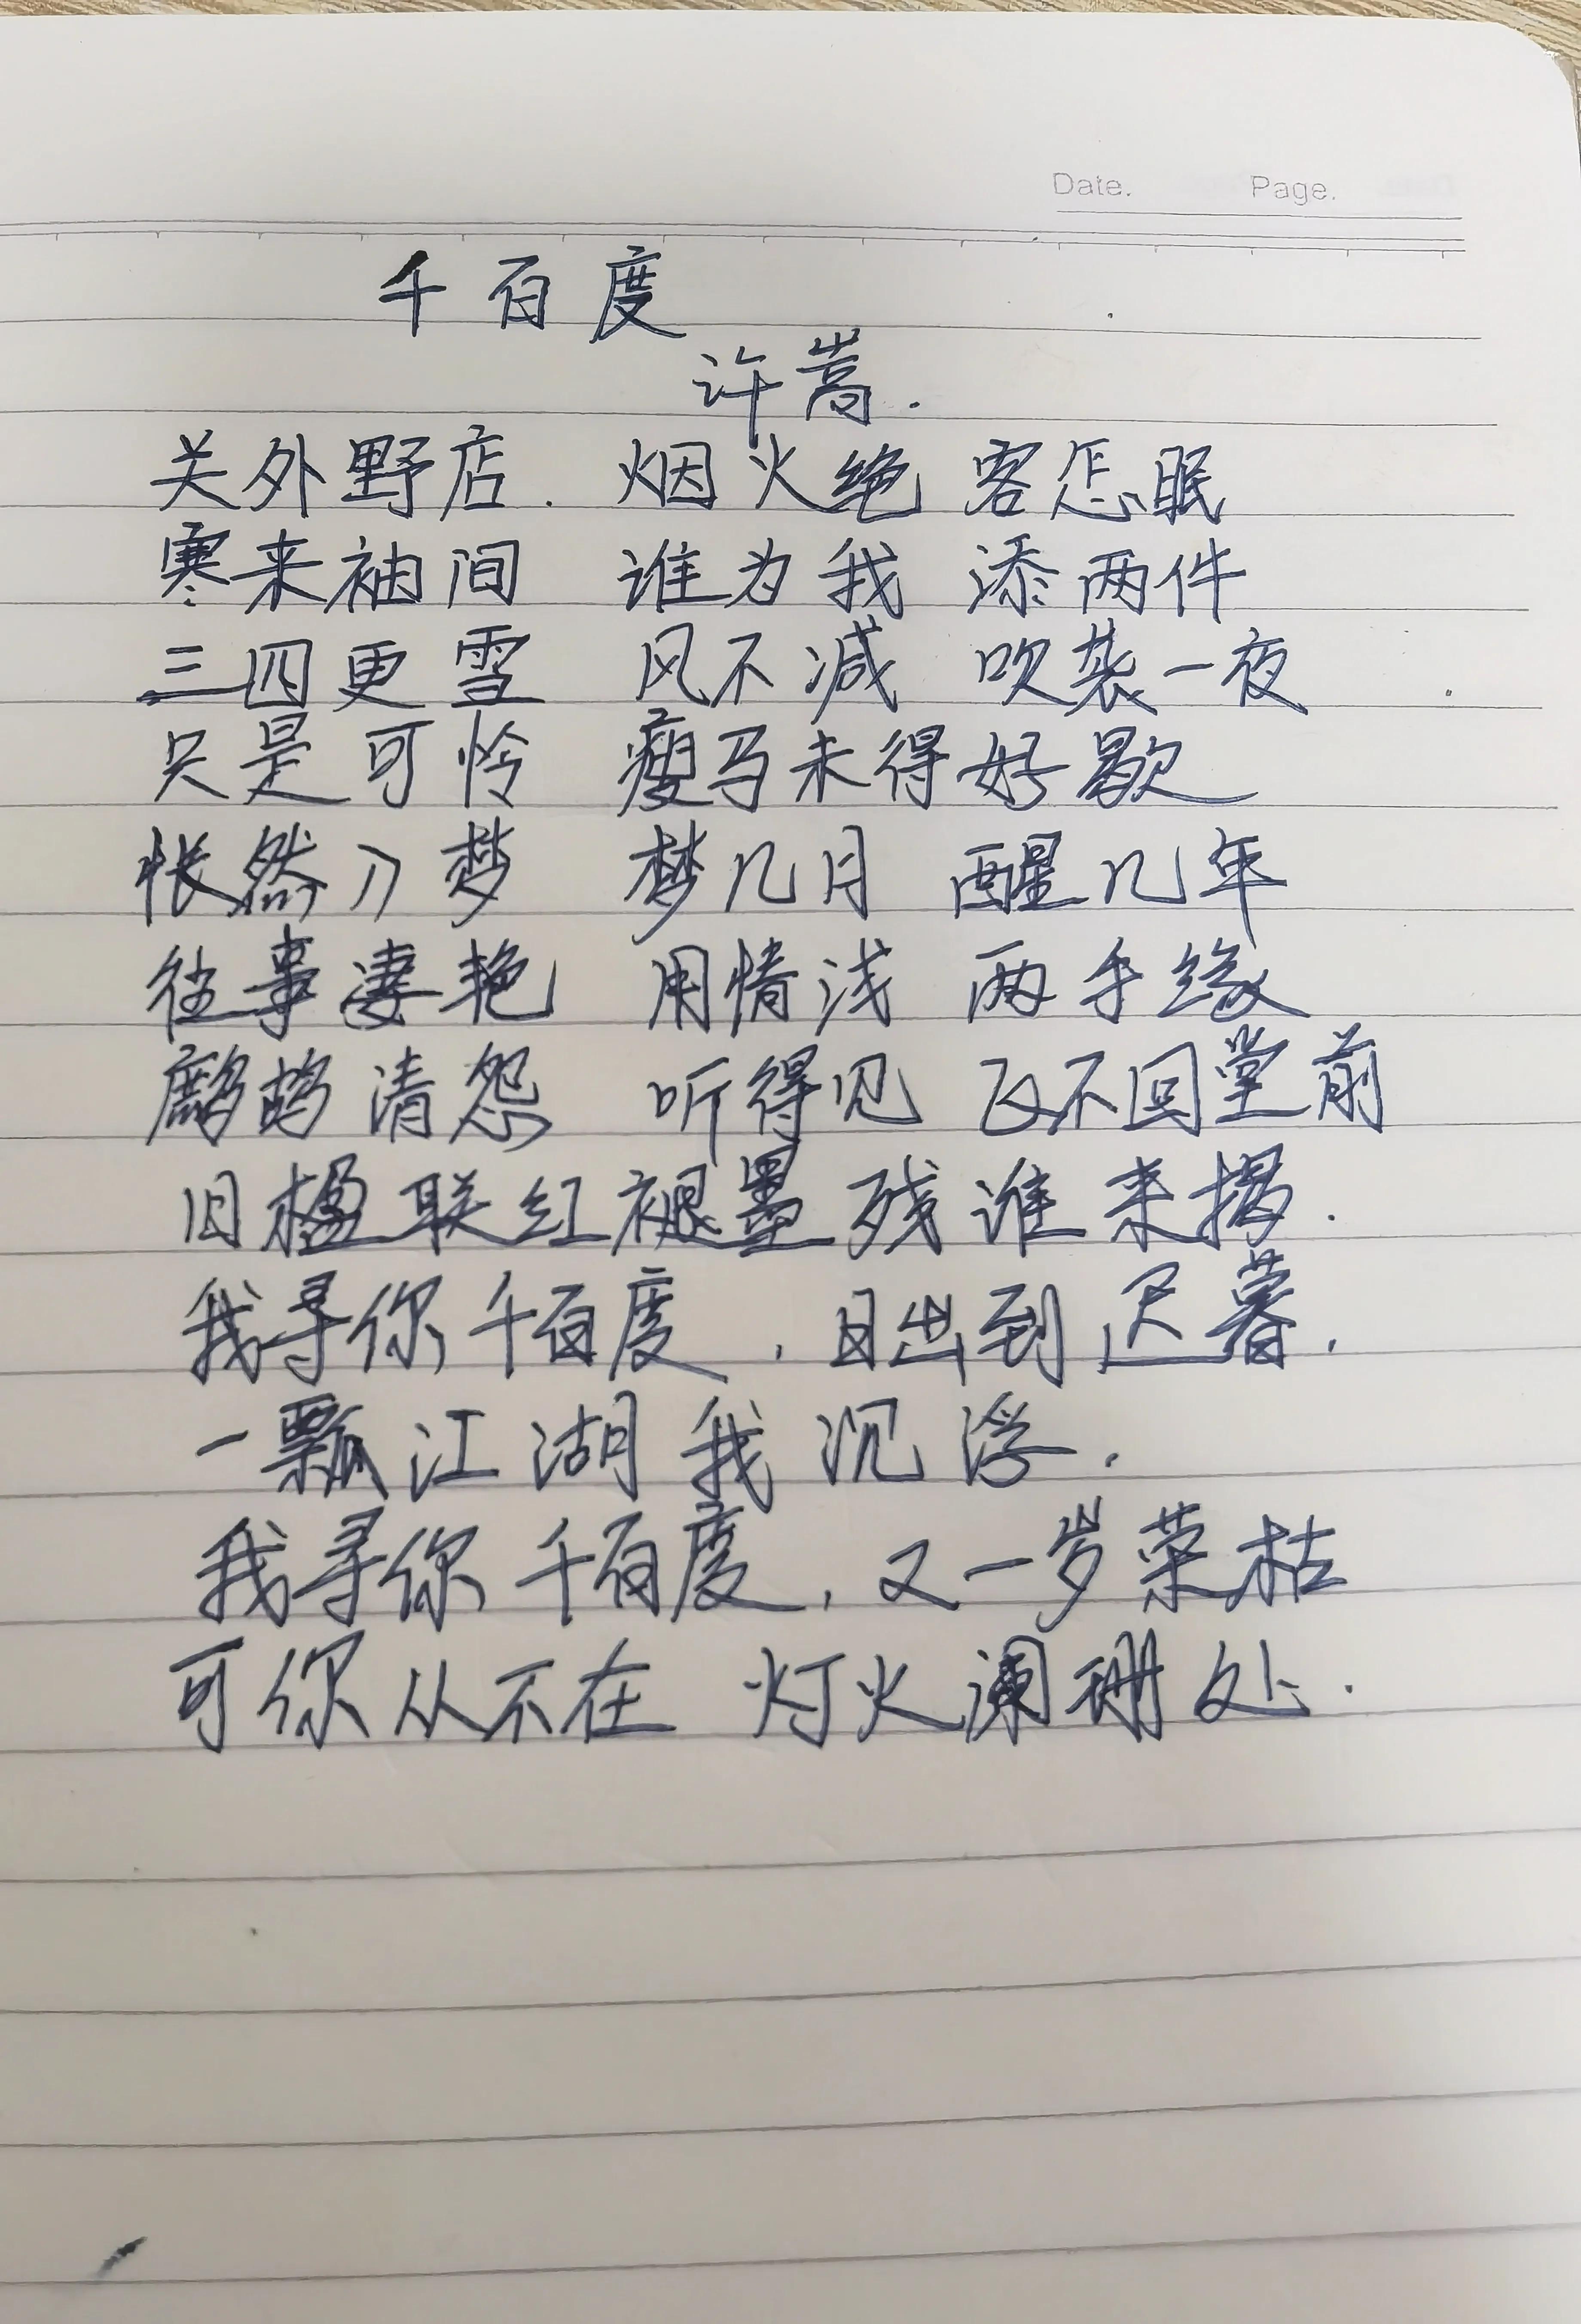 Date. Page.
千百度
许嵩.
关外野店. 烟火绝 客怎眠
寒来袖间 谁为我 添两件
三四更雪 风不减 吹袭一夜
只是可怜 瘦马未得好歇
怅然入梦 梦几月 醒几年
往事凄艳 用情浅 两手缘
鹧鸪清怨 听得见 飞不回堂前
旧楹联红褪墨残谁来揭.
我寻你千百度,日出到迟暮.
一瓢江湖我沉浮.
我寻你千百度,又一岁荣枯
可你从不在 灯火阑珊处.